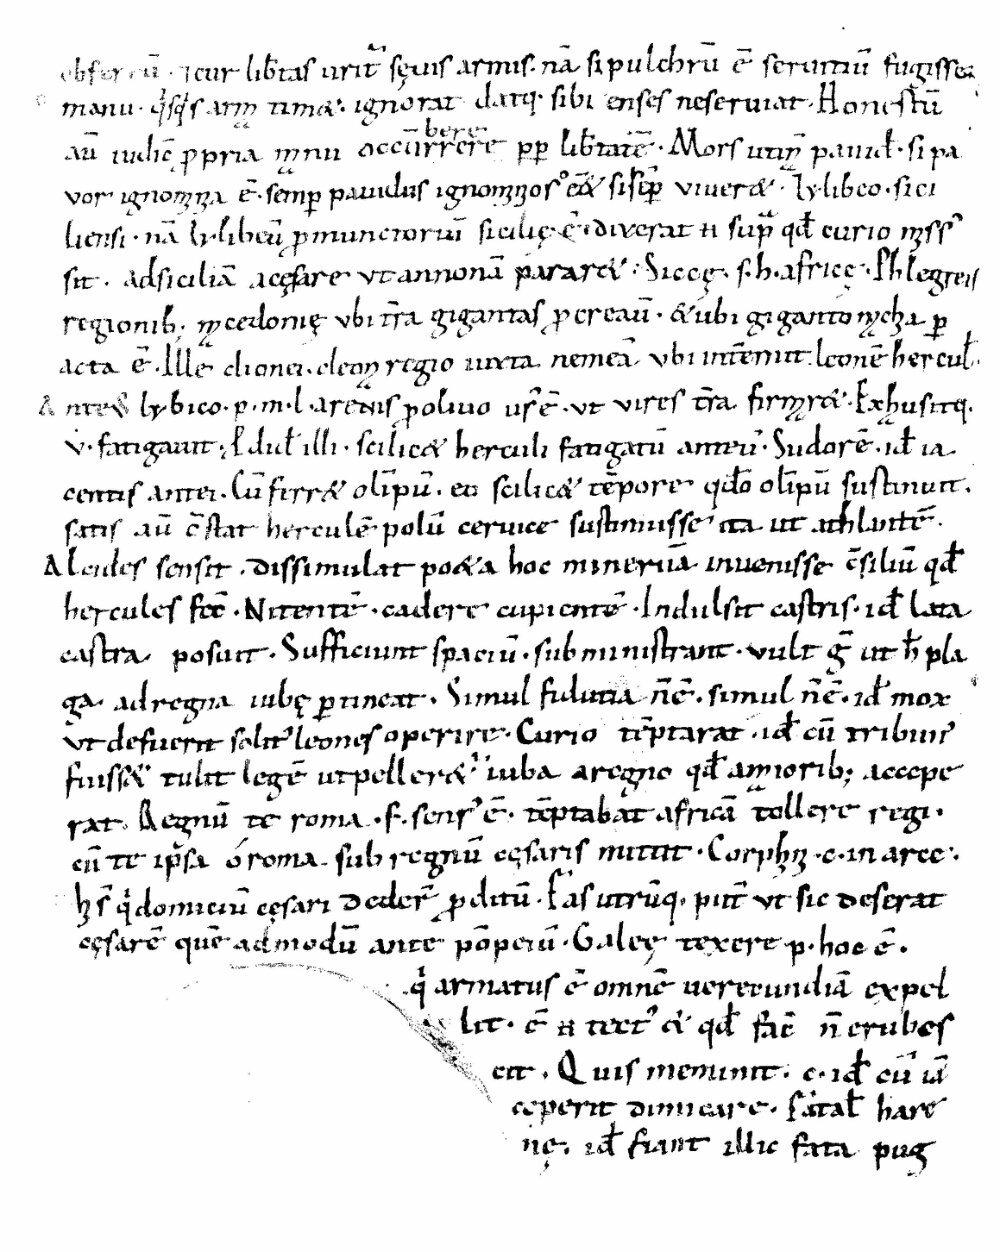 obser cū · ⁊ cur lib̄tas urit᷑ sęuis armis. nā si pulchrū ē seruitiū fugisse
manu · q̇sq̇s arm̄ tim& · ignorat datꝗ sibi enses ne seruiat · Honestū
aū iudic̄ ꝓpria manu occūrrere ꝑꝑ lib̄tatē · Mors utim̄ pauid̄ · si pa
bere
uor ignominia ē · semꝑ pauidus ignominiosꝰ e& si sēꝑ viuer& · Lylibeo · sici
liensi · nā lylibeū ꝓmunctoriū sicilię ē · diuerat n̄ sup̄ qd̄ curio missꝰ
sit · ad siciliā acęsare vt annonā parar& · Siccę · s · h · africę · Phlegreis
regionib; macedonię vbi tr̄a gigantas ꝓcreauī · & ubi gigantomachia ꝑ
acta ē · Ille cleonei · cleona regio iuxta nemeā vbi intēmit leonē hercul̄
Ante& lybico · p · m · l · arenis ꝓ oliuo usꝰ ē · vt vires tr̄a firmar& · Exhausitꝗ ·
v · fatigauit · Ł dul̄ illi · scilic& herculi fatigatū anteū · Sudorē · id̄ ia
centis antei · Cū firr& olīpū · eo scilic& tēpore qd̄o olīpū sustinuit ·
satis aū c̄stat herculē polū ceruice sustinuisse ita ut athlantē ·
Alcides sensit · dissimulat po&a hoc mineruā inuenisse c̄siliū qd̄
hercules fec̄ · Nitentē · cadere cupientē · Indulsit castris · id̄ lata
castra posuit · Sufficiunt spaciū · subministrant · vult ḡ ut h̄ pla
ga ad regna iubę ꝑtineat · Simul fidutia n̄ ē · simul n̄ ē · id̄ mox
vt defuerit solitꝰ leones operire · Curio tēptarat · id̄ cū tribunꝰ
fuiss& tulit legē ut peller& iuba a regno qd̄ a maiorib; accepe
rat · Regnū te roma · f · sensꝰ ē · tēptabat africā tollere regi ·
cū te ip̄sa ó roma sub regnū cęsaris mittit · Corphin · c · in arce ·
hi s̄ q̇ domiciū cęsari deder̄ ꝓditū · Fas utrūꝗ · put̄ vt sic deserat
cęsarē quē admodū ante pōpeiū · Galeę texere p · hoc ē ·
q̇ armatus ē omnē uerecundiā expel
lit · ē n̄ textꝰ & qd̄ fac̄ n̄ erubes
cit · Quis meminit · c · id̄ cū iā
ceperit dimicare · Fatal̄ hare
nę · id̄ fiant illic fata pug